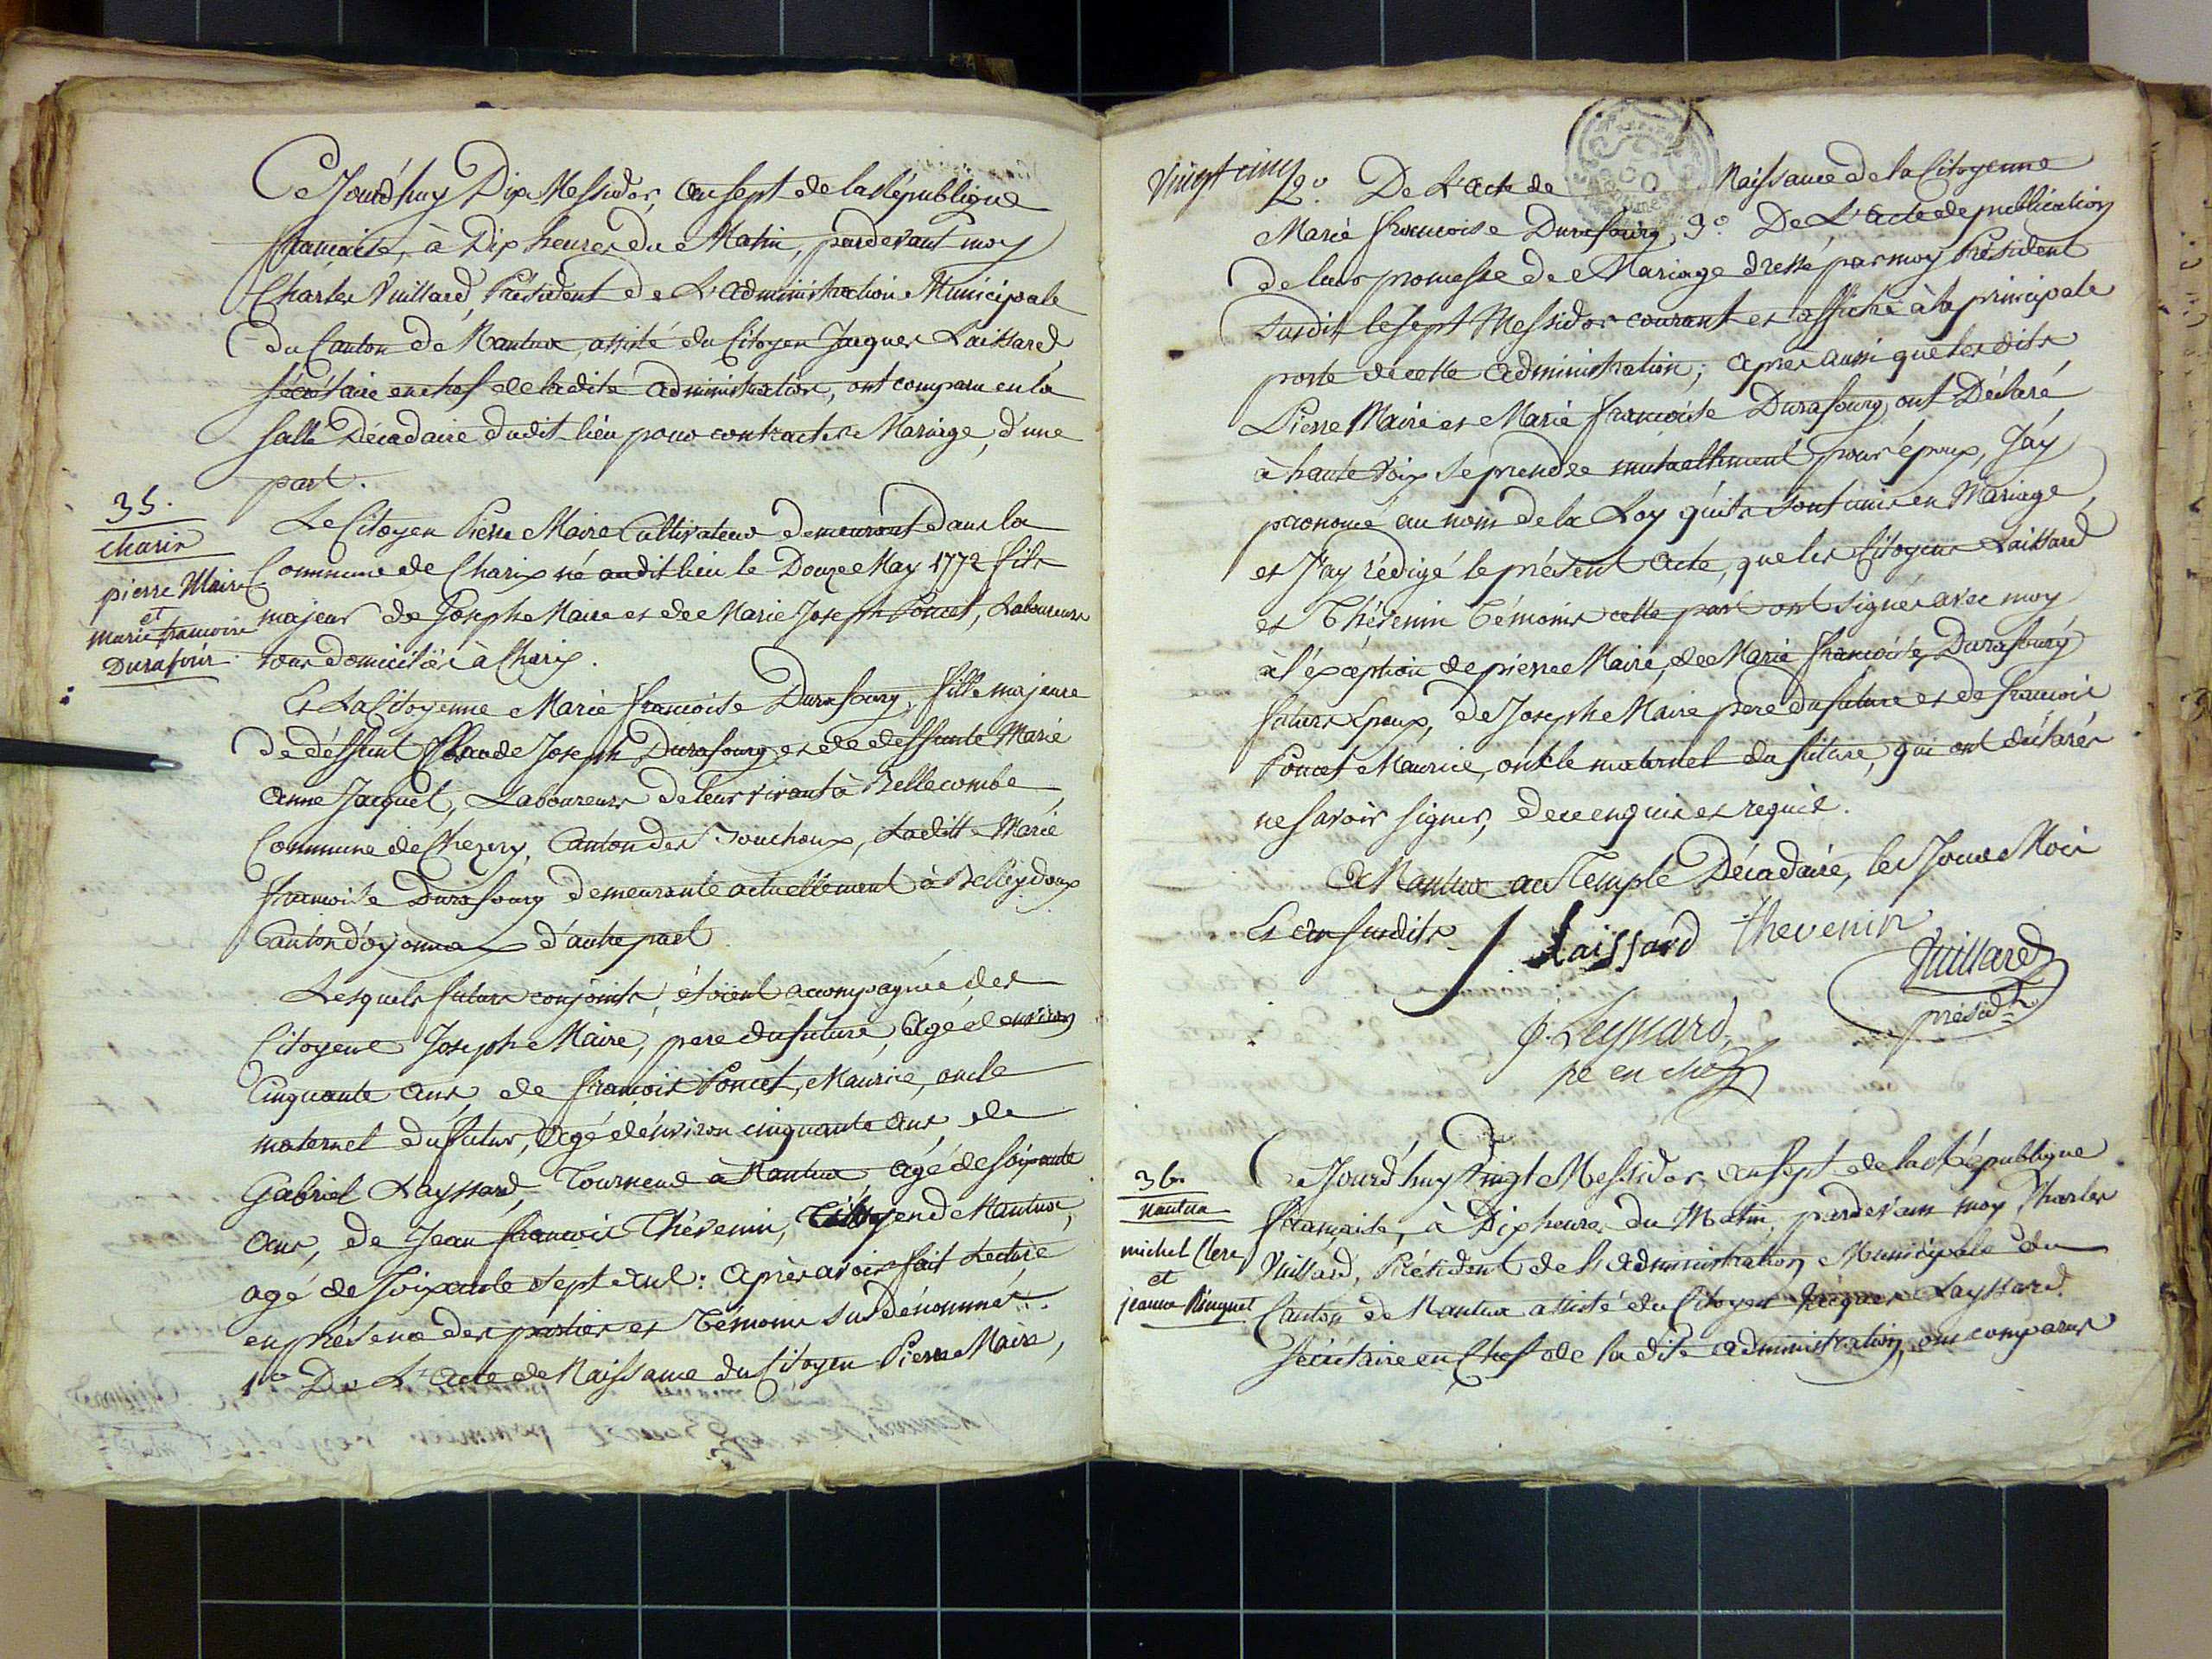 Ce Jourd'huy Dix Messidor, an sept de la République
française, à Dix heures du Matin, pardevant moy
Charles Vuillard, Président de L'administration Municipale
du Canton de Nantua, assisté du Citoyen Jacques Laissard,
sécrétaire en chef de ladite administration, ont comparu en la
salle Décadaire dudit lieu pour contracter Mariage, d'une
part.
35.
charix
pierre Maire
et
marie francoise
Durafour
Le Citoyen Pierre Maire Cultivateur demeurant dans la
Commune de Charix né audit lieu le Douze May 1772 fils
majeur de Joseph Maire et de Marie Joseph Poncet, Laboureurs
tous domiciliés à Charix.
Et La Citoyenne Marie francoise Durafourg, fille majeure
de déffunt Claude Joseph Durafourg et de deffunte Marie
anne Jacquet, Laboureurs de leur vivant à Bellecombe
Commune de Chezery, Canton des Bouchoux, Laditte Marie
francoise Durafourg demeurante actuellement à Belleydoux
Canton d'oyonnax d'autre part
Lesquels futurs conjoints, étoient accompagnés des
Citoyens Joseph Maire, pere du future, agé d'environ
Cinquante ans, de francois Poncet, Maurice, oncle
maternel du futur, agé d'environ cinquante ans, de
Gabriel Layssard, Tourneur à Nantua, agé de soixante
ans, de Jean francois Thévenin, Citoyen de Nantua,
agé de soixante sept ans: après avoir fait Lecture
en présence des parties et Témoins susdénommés.
1º De L'acte de Naissance du Citoyen Pierre Maire,
Vingt cinq
2º. De L'acte de Naissance de la Citoyenne
Marie francoise Durafourg, 3º. De L'acte de publication
de leurs promesse de Mariage dressé par moy Président
susdit le sept Messidor courant et affiché à la principale
porte de cette administration; après aussi que lesdits
Pierre Maire et Marie francoise Durafourg, ont Déclaré
à haute voix se prendre mutuellement pour époux, J'ay
prononcé au nom de la Loy qu'ils sont unis en Mariage,
et J'ay rédigé le présent acte, que les Citoyens Laissard
et Thévenin Témoins cette part ont signés avec moy
à l'éxception de pierre Maire, de Marie francoise Durafourg
futurs Epoux, de Joseph Maire pere du future et de francois
Poncet Maurice, oncle maternel du future, qui ont déclarés
ne savoir signer, de ce enquis et requis.
A Nantua au Temple Décadaire, les Jour Mois
Et an susdits
Laissard thevenin
Vuillard
présidt.
J. Leyssard,
re en chef
36.
nantua
michel Clerc
et
jeanne Ringuet
Ce Jourd'huy Vingt Messidor, an sept de la République
française, à Dix heures du Matin, pardevant moy Charles
Vuillard, Président de l'administration Municipale du
Canton de Nantua assisté du Citoyen Jacques Layssard
sécrétaire en Chef de ladite administration, ont comparus